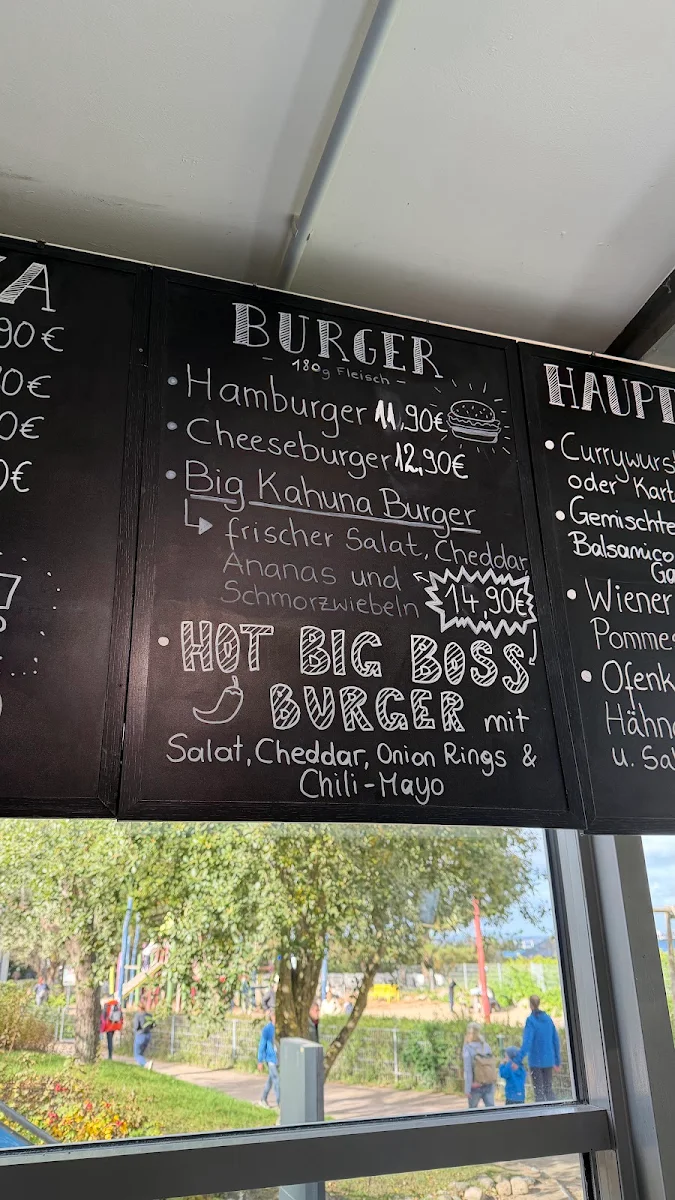 KA
90€
0€
0€
0€
BURGER
- 180g Fleisch -
• Hamburger 11,90€
• Cheeseburger 12,90€
• Big Kahuna Burger
frischer Salat, Cheddar,
Ananas und
Schmorzwiebeln
14,90€
• HOT BIG BOSS
BURGER mit
Salat, Cheddar, Onion Rings &
Chili-Mayo
HAUPT
• Currywurst
oder Kart
• Gemischte
Balsamico
Ga
• Wiener
Pommes
• Ofenk
Hähn
u. Sal